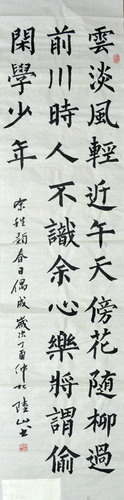 雲淡風輕近午天傍花隨柳過
前川時人不識余心樂將謂偷
閑學少年
宋程顥春日偶成歲次丁酉仲秋陸山書